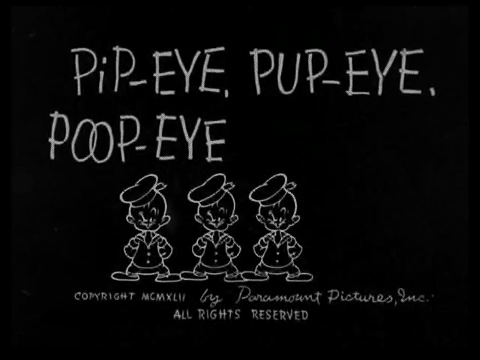 PiP-EYE, PUP-EYE,
POOP-EYE
COPYRIGHT MCMXLII by Paramount Pictures, Inc.
ALL RIGHTS RESERVED